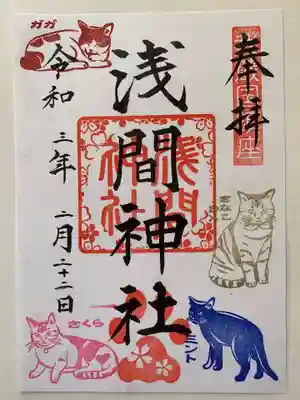 奉拝
浅間神社
淺間
神社
令和三年二月二十二日
ガガ
きなこ
さくら
ミント